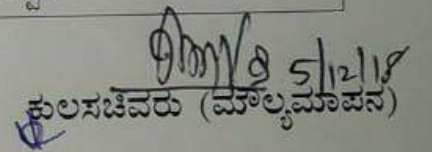 5/12/18
ಕುಲಸಚಿವರು (ಮೌಲ್ಯಮಾಪನ)